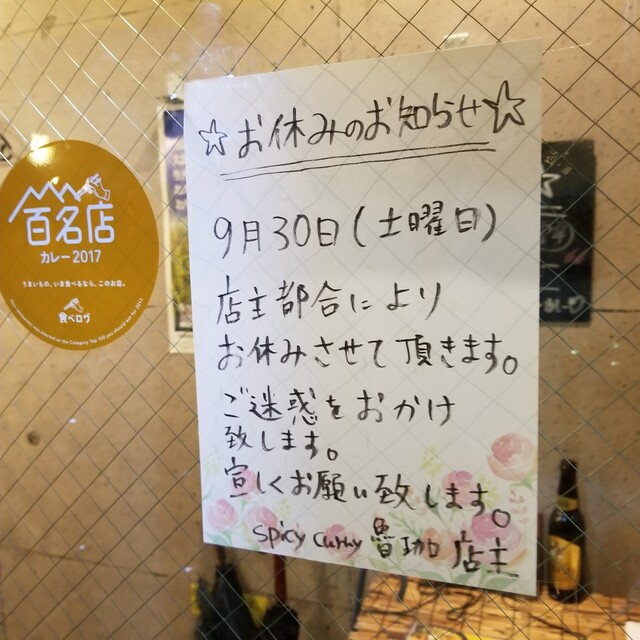 ☆お休みのお知らせ☆
9月30日(土曜日)
店主都合により
お休みさせて頂きます。
ご迷惑をおかけ
致します。
宜しくお願い致します。
spicy curry 魯珈 店主
百名店
カレー2017
うまいもの、いま食べるなら、このお店。
食べログ